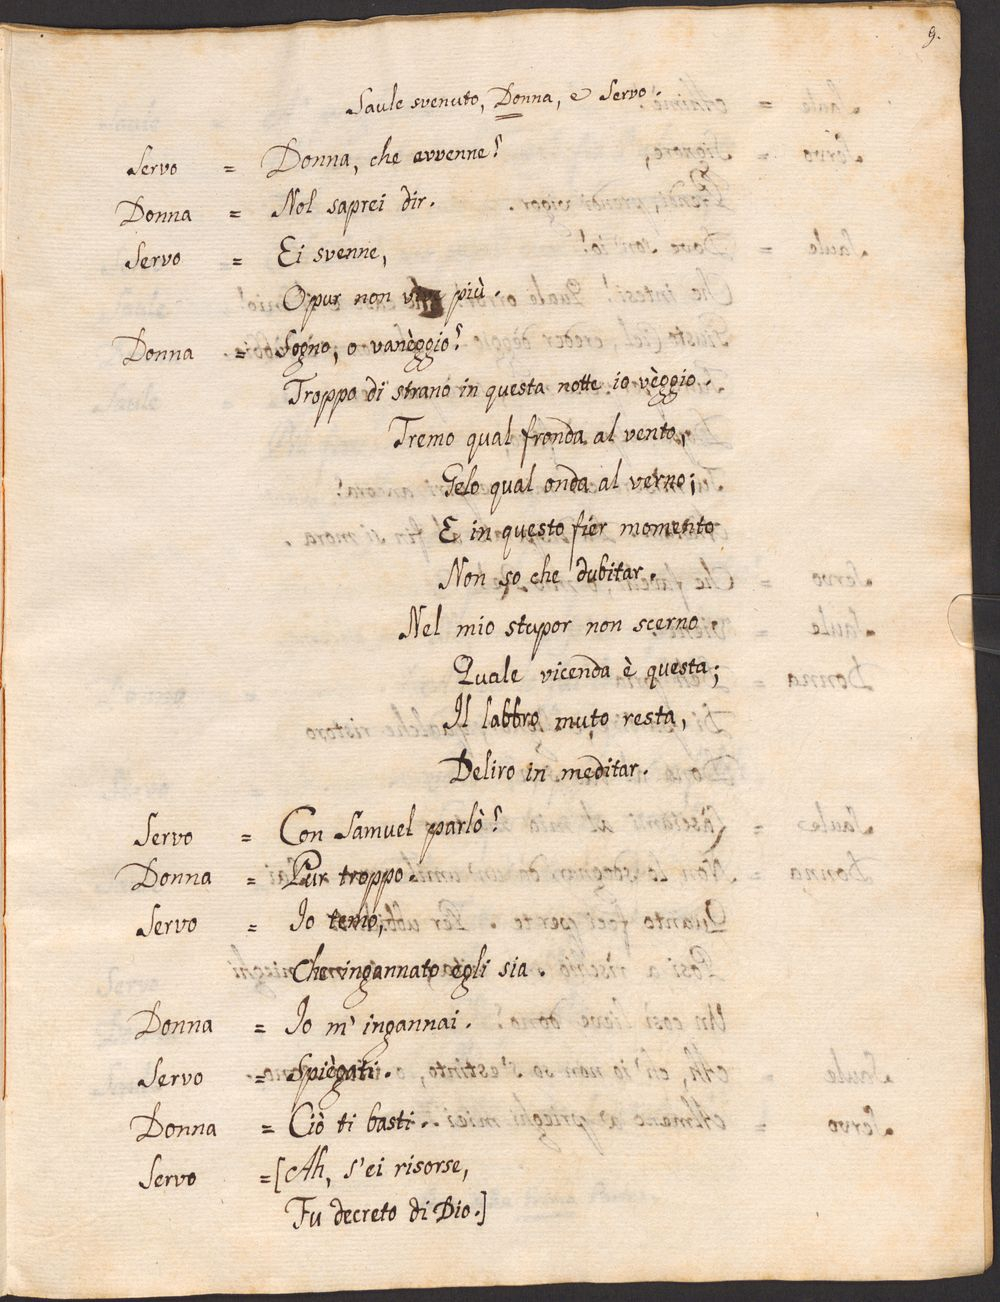 9.
Saule svenuto, Donna, e Servo.
Servo = Donna, che avvenne?
Donna = Nol saprei dir.
Servo = Ei svenne,
Opur non vive più.
Donna = Sogno, o vanèggio?
Troppo di strano in questa notte io vèggio.
Tremo qual fronda al vento,
Gelo qual onda al verno;
E in questo fier momento
Non so che dubitar.
Nel mio stupor non scerno
Quale vicenda è questa;
Il labbro muto resta,
Deliro in meditar.
Servo = Con Samuel parlò?
Donna = Pur troppo.
Servo = Io temo,
Che ingannato egli sia.
Donna = Io m' ingannai.
Servo = Spiègati.
Donna = Ciò ti basti.
Servo = [Ah, s'ei risorse,
Fu decreto di Dio.]